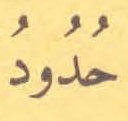 حُدُودُ